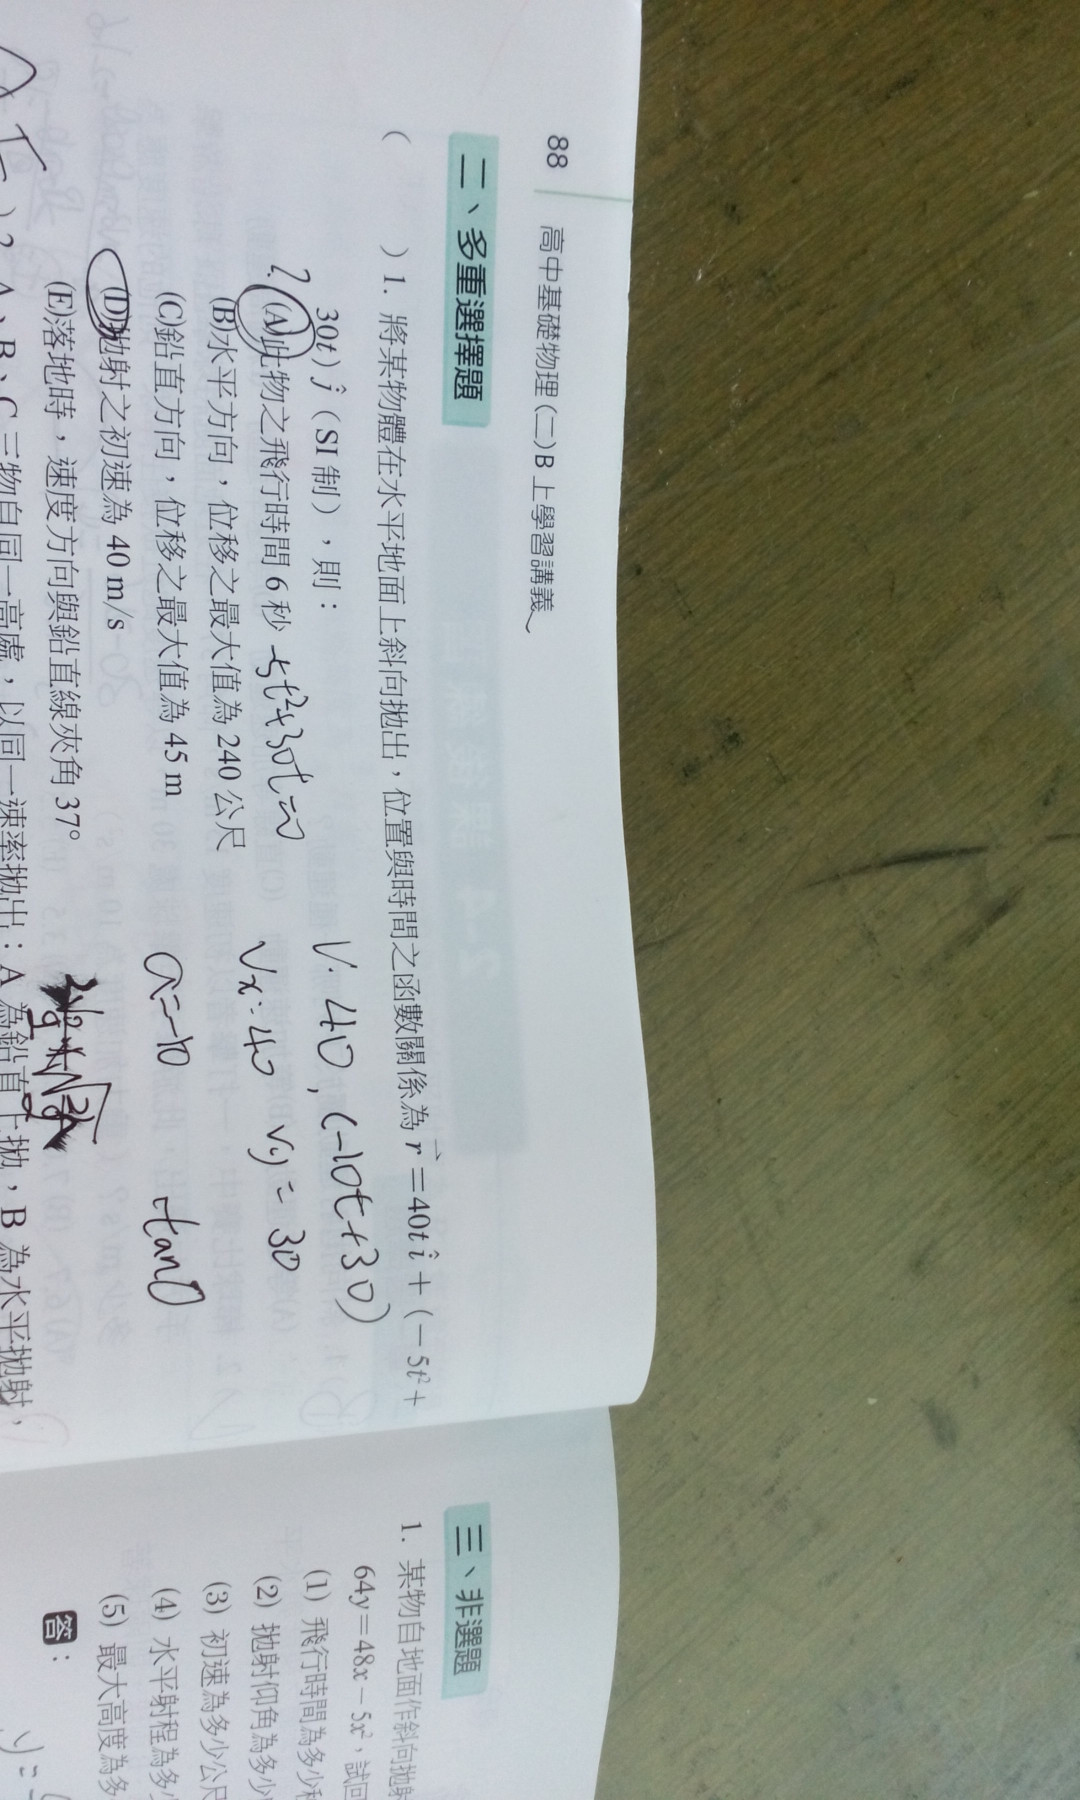 88 高中基礎物理(二)B 上學習講義
二、多重選擇題
( ) 1. 將某物體在水平地面上斜向拋出，位置與時間之函數關係為 r⃗＝40t î＋(－5t²＋
30t) ĵ（SI 制），則：
V: 40, (-10t+30)
? (A)此物之飛行時間 6 秒 -5t²+30t=0
Vx: 40 Vy = 30
(B)水平方向，位移之最大值為 240 公尺
(C)鉛直方向，位移之最大值為 45 m
a=-10 tanθ
(D)拋射之初速為 40 m/s
(E)落地時，速度方向與鉛直線夾角 37°
) 2. A、B、C 三物自同一高處，以同一速率拋出：A 為鉛直上拋，B 為水平拋射，
三、非選題
1. 某物自地面作斜向拋射
64y＝48x－5x²，試回
(1) 飛行時間為多少秒
(2) 拋射仰角為多少
(3) 初速為多少公尺
(4) 水平射程為多少
(5) 最大高度為多
答：
y=